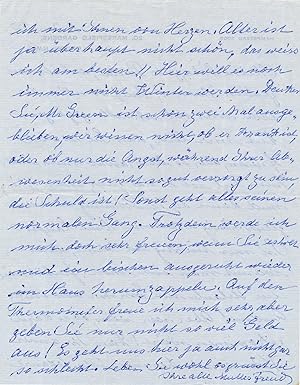 ich mit Ihnen von Herzen. Alter ist
ja überhaupt nicht schön, das weiss
ich am besten!! Hier will es noch
immer nicht Winter werden. Denken
Sie, Mr Green ist schon zwei Mal ausge-
blieben, wir wissen nicht, ob er krank ist
oder ob nur die Angst, während Ihrer Ab-
wesenheit nicht so gut versorgt zu sein,
die Schuld ist! Sonst geht alles seinen
normalen Gang. Trotzdem werde ich
mich doch sehr freuen, wenn Sie erholt
und ein bischen ausgeruht wieder
im Haus herumzappeln. Auf den
Thermometer freue ich mich sehr, aber
geben Sie nur nicht so viel Geld
aus! Es geht uns hier ja auch nicht gar
so schlecht. Leben Sie wohl, es grüsst Sie
Ihre alte